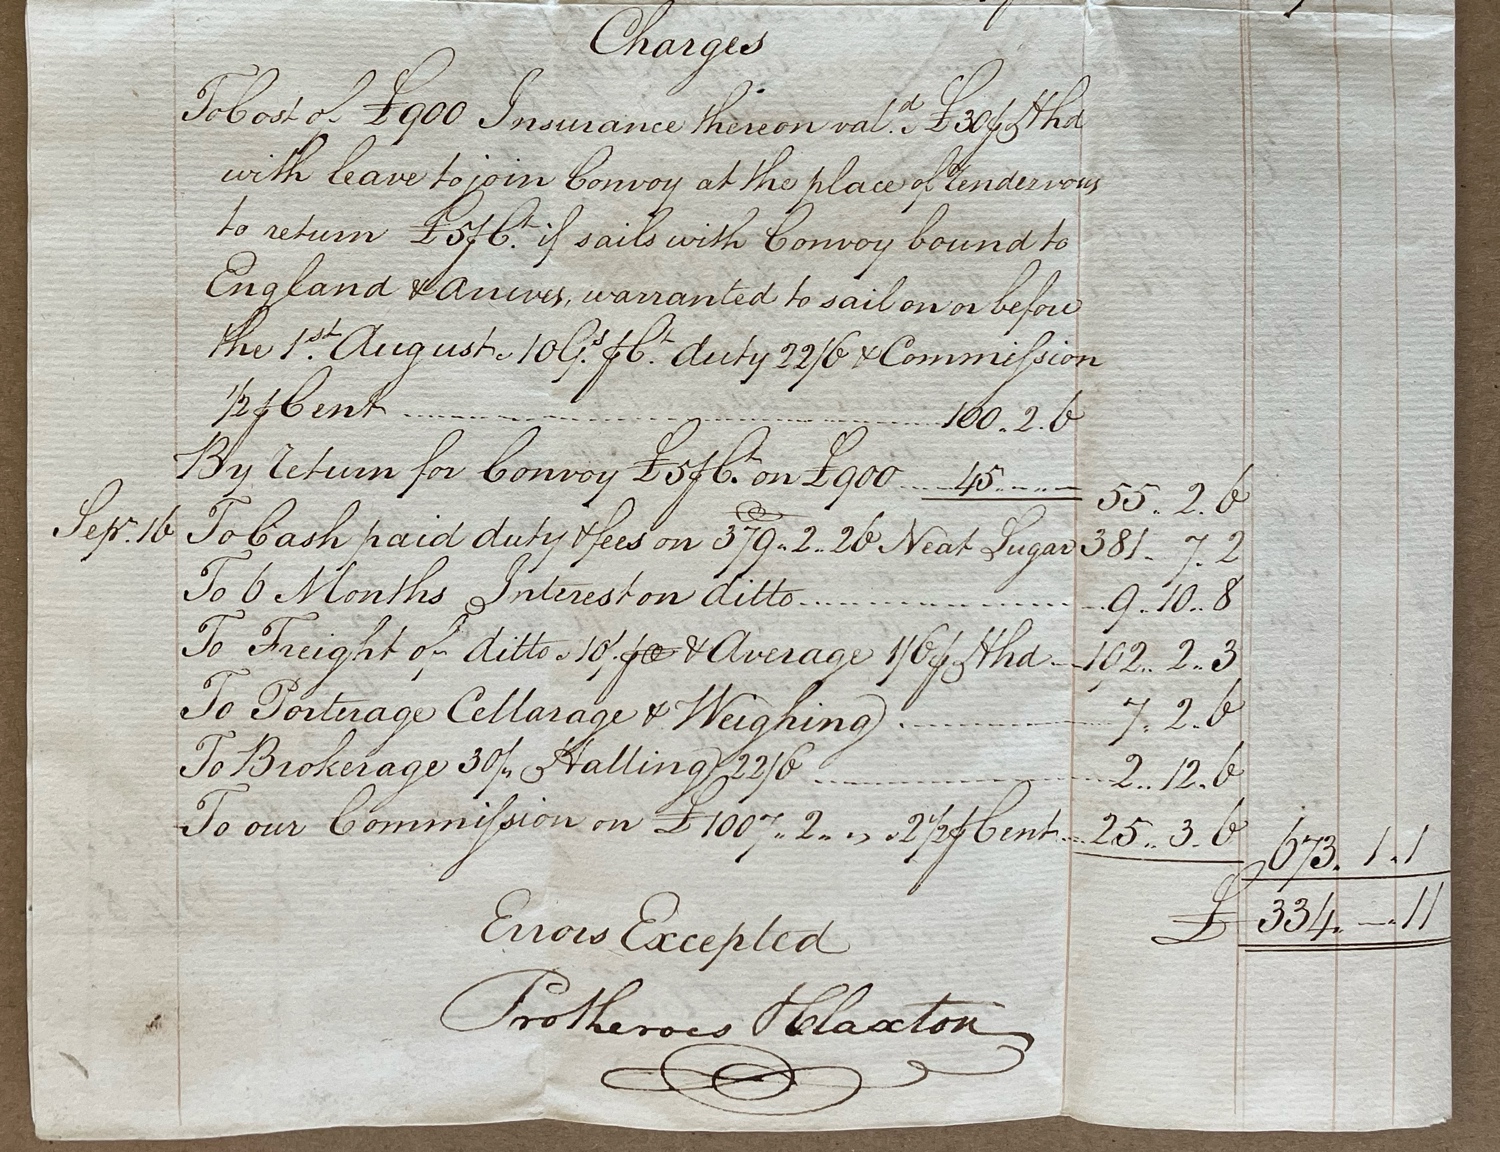 Charges
To Cost of £900 Insurance thereon val.d £30 ⅌ Hhd
with leave to join Convoy at the place of Rendervous
to return £5 ⅌ C.t if sails with Convoy bound to
England & arrives, warranted to sail on or before
the 1st. August. 10 G.s ⅌ C.t duty 22/6 & Commission
1/2 ⅌ Cent 100. 2. 6
By return for Convoy £5 ⅌ C.t on £900 45 55. 2. 6
Sepr. 16 To Cash paid duty & fees on 379. 2. 26 Neat Sugar 381. 7. 2
To 6 Months Interest on ditto 9. 10. 8
To Freight of ditto 10/. & Average 1/6 ⅌ Hhd 192. 2. 3
To Porterage Cellarage & Weighing 7. 2. 6
To Brokerage 30/. Halling 22/6 2. 12. 6
To our Commission on £1007. 2. 2 1/2 ⅌ Cent 25. 3. 6 673. 1. 1
£ 334. — 11
Errors Excepted
Protheroes & Claxton